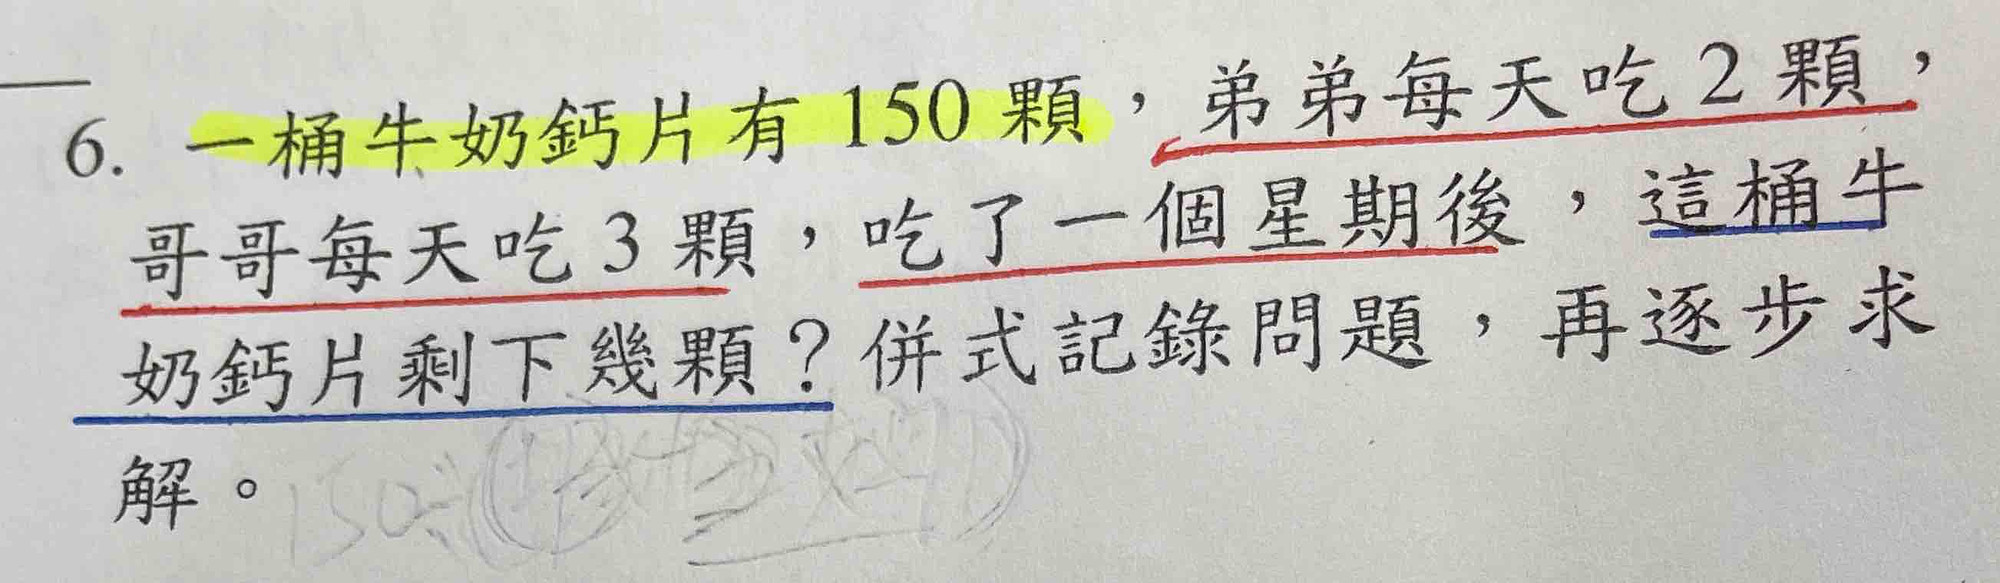 6. 一桶牛奶鈣片有 150 顆，弟弟每天吃 2 顆，
哥哥每天吃 3 顆，吃了一個星期後，這桶牛
奶鈣片剩下幾顆？併式記錄問題，再逐步求
解。